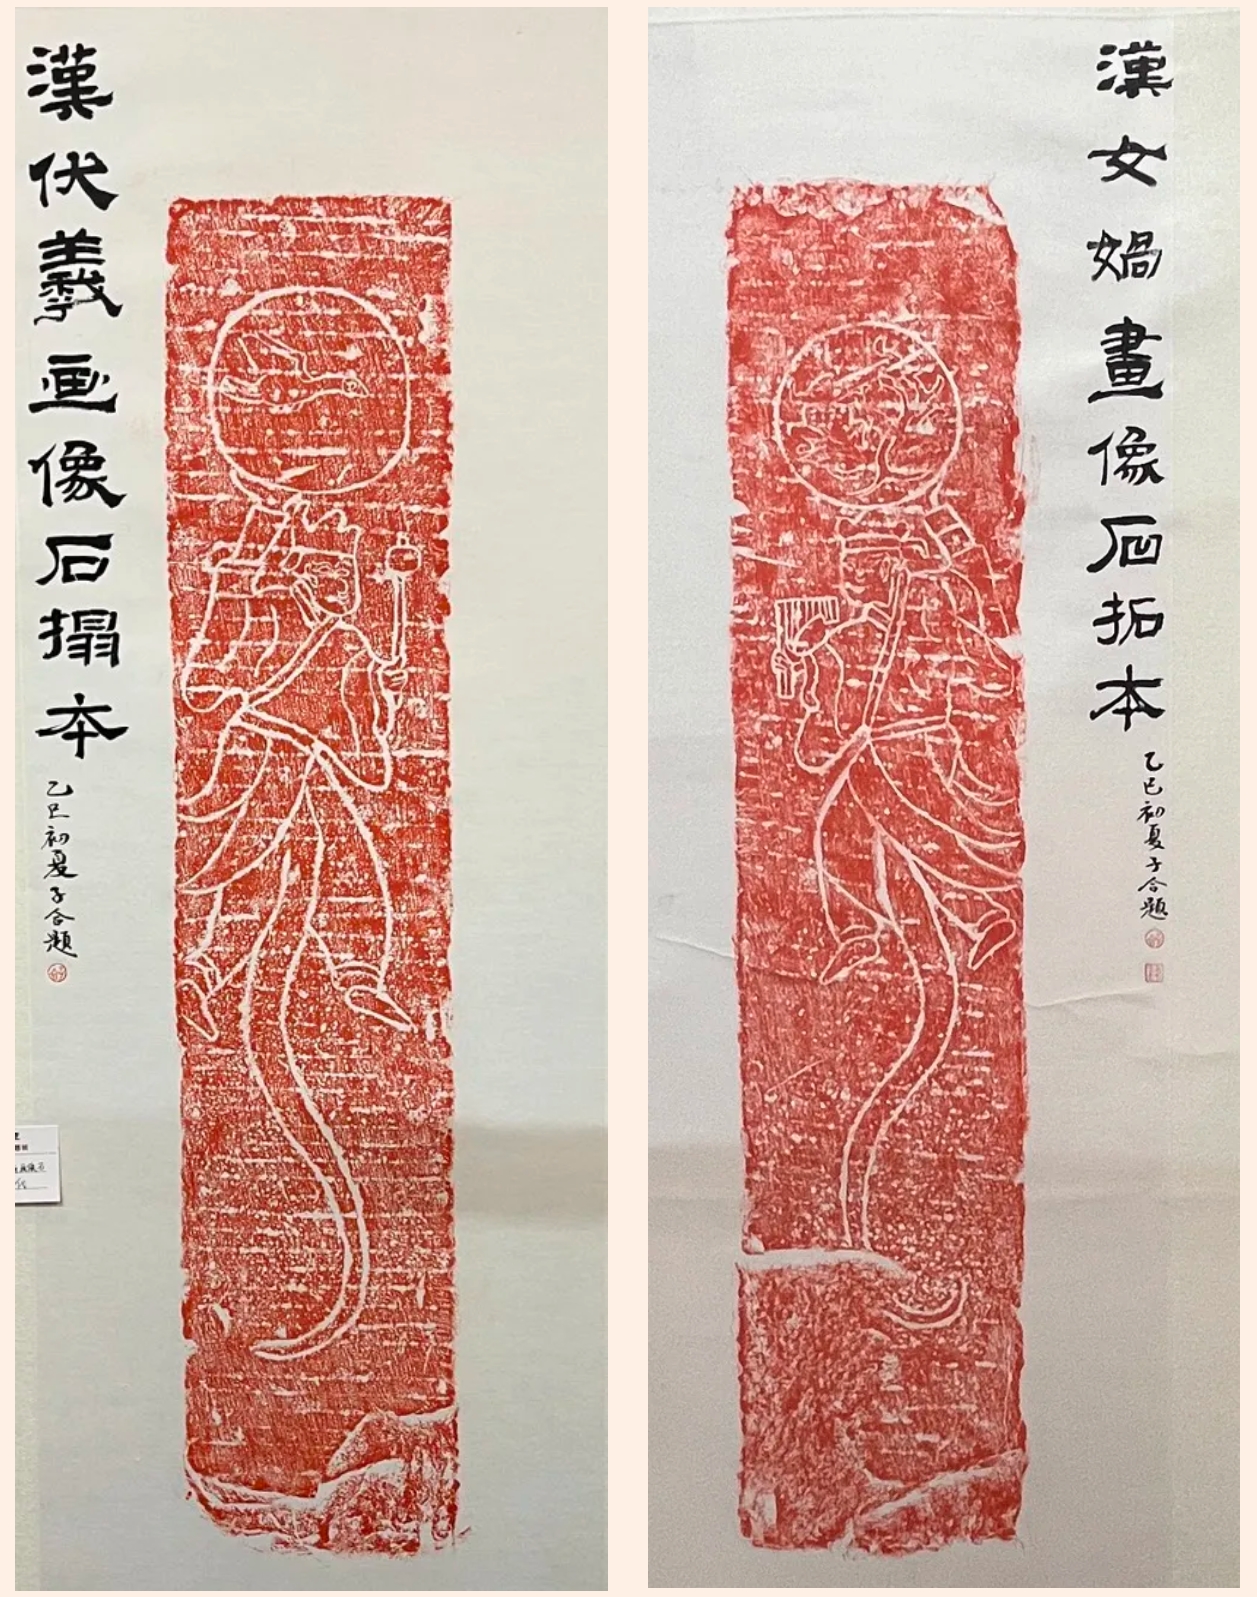 漢伏羲画像石搨本
乙巳初夏子合題
漢女媧畫像石拓本
乙巳初夏子合題